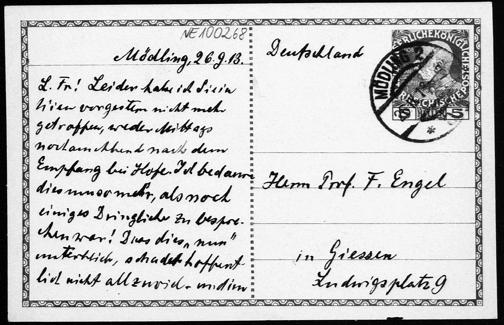 NE100268
Mödling, 26.9.13.
L. Fr! Leider habe ich Sie in
Wien vorgestern nicht mehr
getroffen, weder Mittags
noch anschließend nach dem
Empfang bei Hofe. Ich bedaure
dies umso mehr, als noch
einiges Dringliche zu bespre-
chen war! Dass dies „nun"
unterblieb, schadet hoffent
lich nicht allzu viel. und im
Deutschland
MÖDLING 2
5 5
Herrn Prof. F. Engel
in Giessen
Ludwigsplatz 9